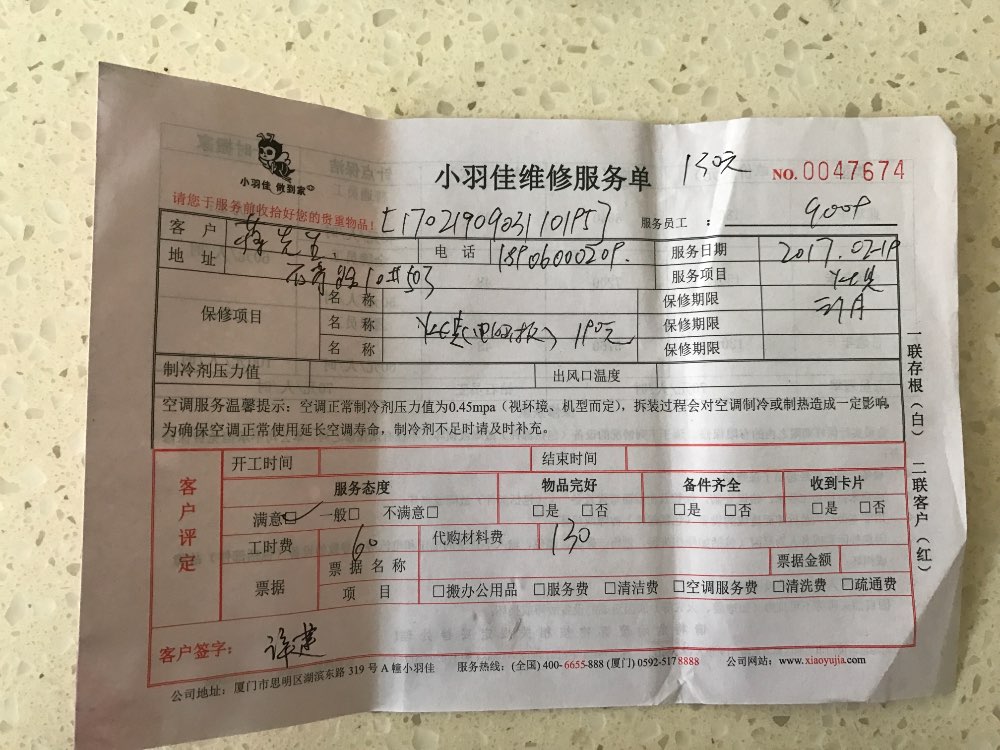 小羽佳 做到家
小羽佳维修服务单 130元 NO.0047674
请您于服务前收拾好您的贵重物品！ [17021909031101P5] 服务员工 ：
客 户 先生 电 话 18906000209. 服务日期 2017.02-19
地 址 10#503 服务项目
保修项目 名 称 保修期限 3个月
名 称 190元 保修期限
名 称 保修期限
制冷剂压力值 出风口温度
空调服务温馨提示：空调正常制冷剂压力值为0.45mpa（视环境、机型而定），拆装过程会对空调制冷或制热造成一定影响，
为确保空调正常使用延长空调寿命，制冷剂不足时请及时补充。
一联存根（白） 二联客户（红）
客户评定
开工时间 结束时间
服务态度 物品完好 备件齐全 收到卡片
满意☑ 一般□ 不满意□ □是 □否 □是 □否 □是 □否
工时费 60 代购材料费 130
票据 票据名称 票据金额
项 目 □搬办公用品 □服务费 □清洁费 □空调服务费 □清洗费 □疏通费
客户签字：
公司地址：厦门市思明区湖滨东路 319 号 A 幢小羽佳 服务热线：(全国) 400-6655-888 (厦门) 0592-5178888 公司网站：www.xiaoyujia.com